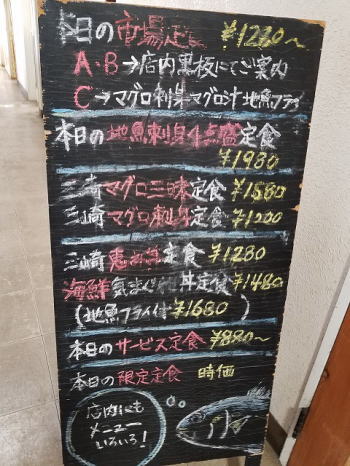 本日の市場定食 ¥1280～
A・B→店内黒板にてご案内
C→マグロ刺身 マグロ汁 地魚フライ
本日の地魚刺身4点盛定食
¥1980
三崎マグロ三昧定食 ¥1580
三崎マグロ刺身定食 ¥1200
三崎恵み丼定食 ¥1280
海鮮気まぐれ丼定食 ¥1480
(地魚フライ付 ¥1680)
本日のサービス定食 ¥880～
本日の限定定食 時価
店内にも
メニュー
いろいろ!